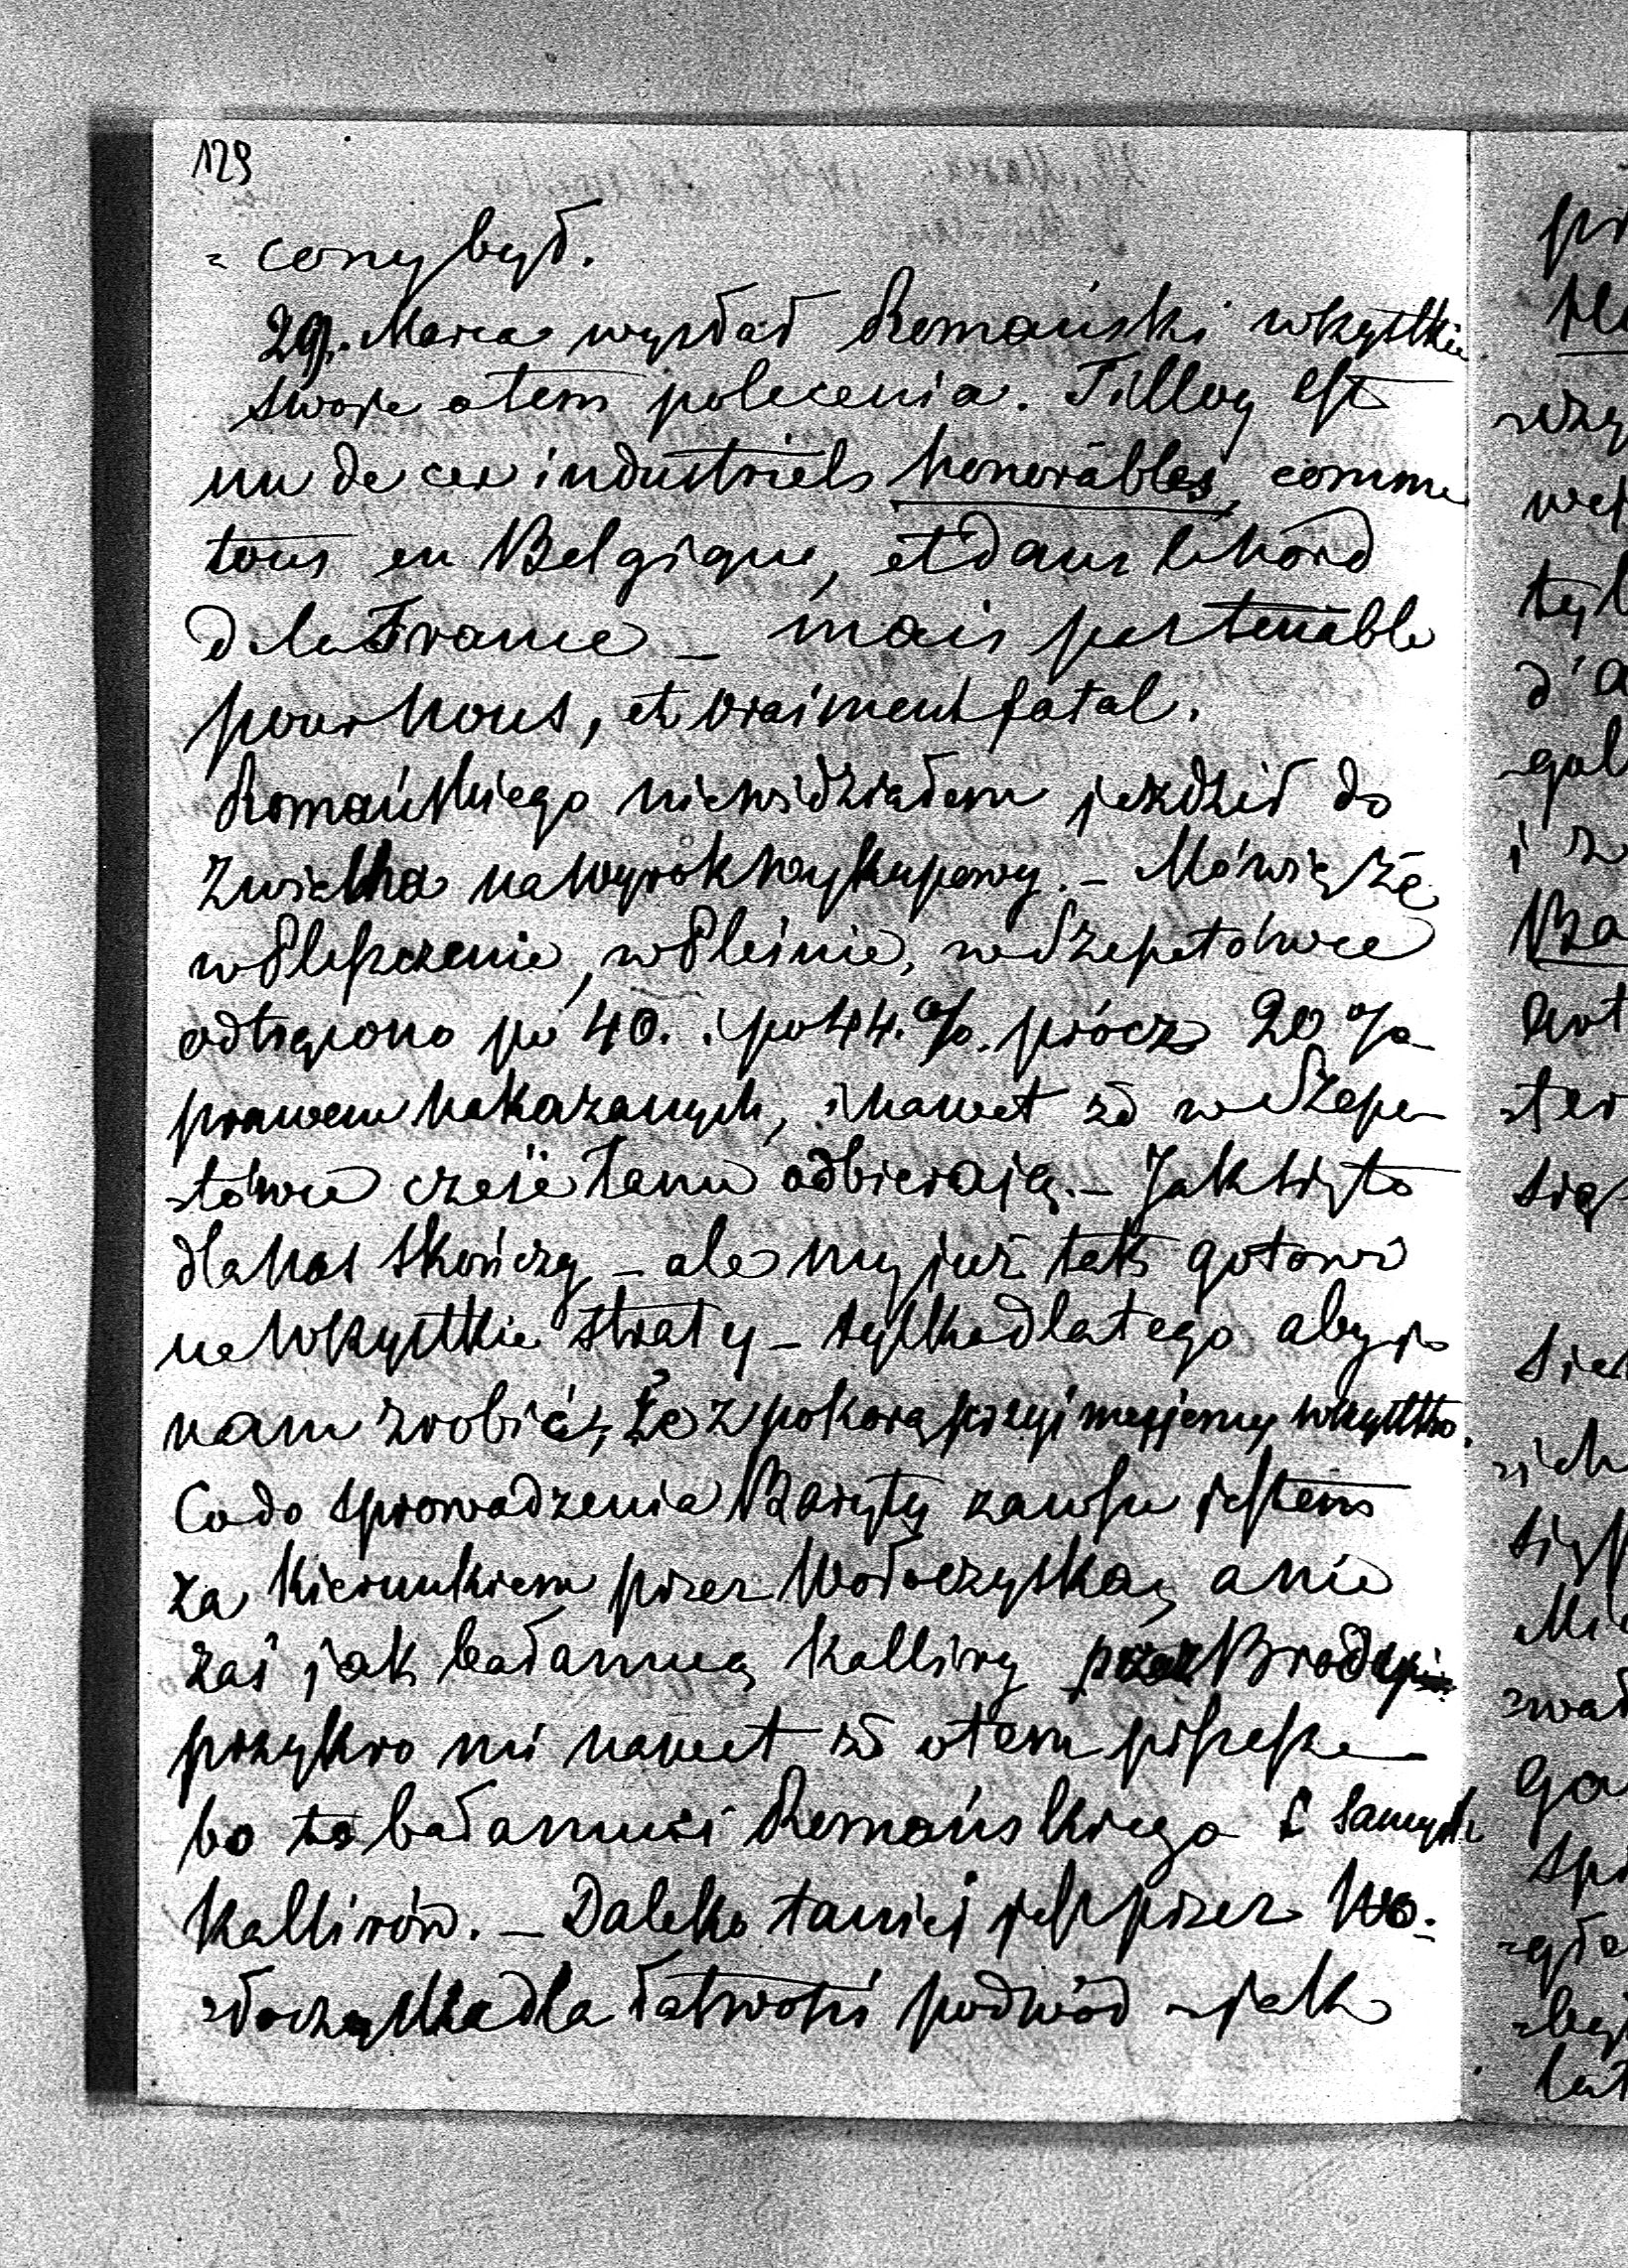 129
= cony był.
29. Marca wysłał Romański wszystkie
swoje o tem polecenia. Tilloy est
un de ces industriels honorables, comme
tous en Belgique, et dans le Nord
d la France – mais pas tenable
pour nous, et vraiment fatal.
Romańskiego niewidziałem jeździł do
Zwiahla na wyrok wykupowy. – Mówią że
w Oleszczenie, w Oleśnie, w Szepetówce
odtrącono po 40. i po 44. %. prócz 20 %
prawem nakazanych, i nawet że w Szepe-
-tówce cześć łanu odbierają. – Jak się to
dla nas skończy – ale my już tak gotowi
na wszystkie straty – tylko dlatego aby je
nam zrobić, że z pokorą przyjmujemy wszystko.
Co do sprowadzenia Baryty zawsze jestem
za kierunkiem przez Wołoczyska, a nie
zaś jak bałamucą Kalliry przez Brody
przykro mi nawet że o tem piszesz
bo to bałamuci Romańskiego samych
Kallirów. – Daleko taniej jest przez Wo-
-łoczyska dla łatwości podwód – jak
pi
-wzy
tyl
d'a
-gal
i z
Ba
-ter
się
-ich
się
-wad
ga